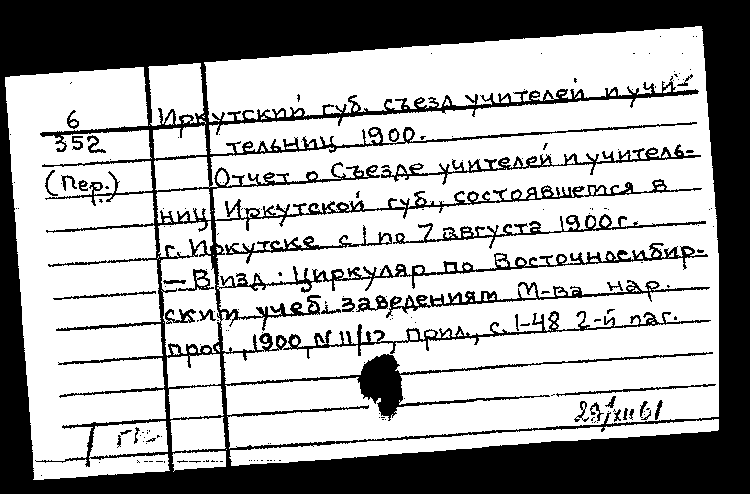 6 Иркутский губ. съезд учителей и учи-
352 тельниц 1900.
(Пер.) Отчет о Съезде учителей и учитель-
ниц Иркутской губ., состоявшемся в
г. Иркутске с 1 по 7 августа 1900 г.
— В изд.: Циркуляр по Восточносибир-
ским учеб. заведениям М-ва нар.
прос., 1900, N 11/12, прил., с. 1-48 2-й паг.
29/XII 61